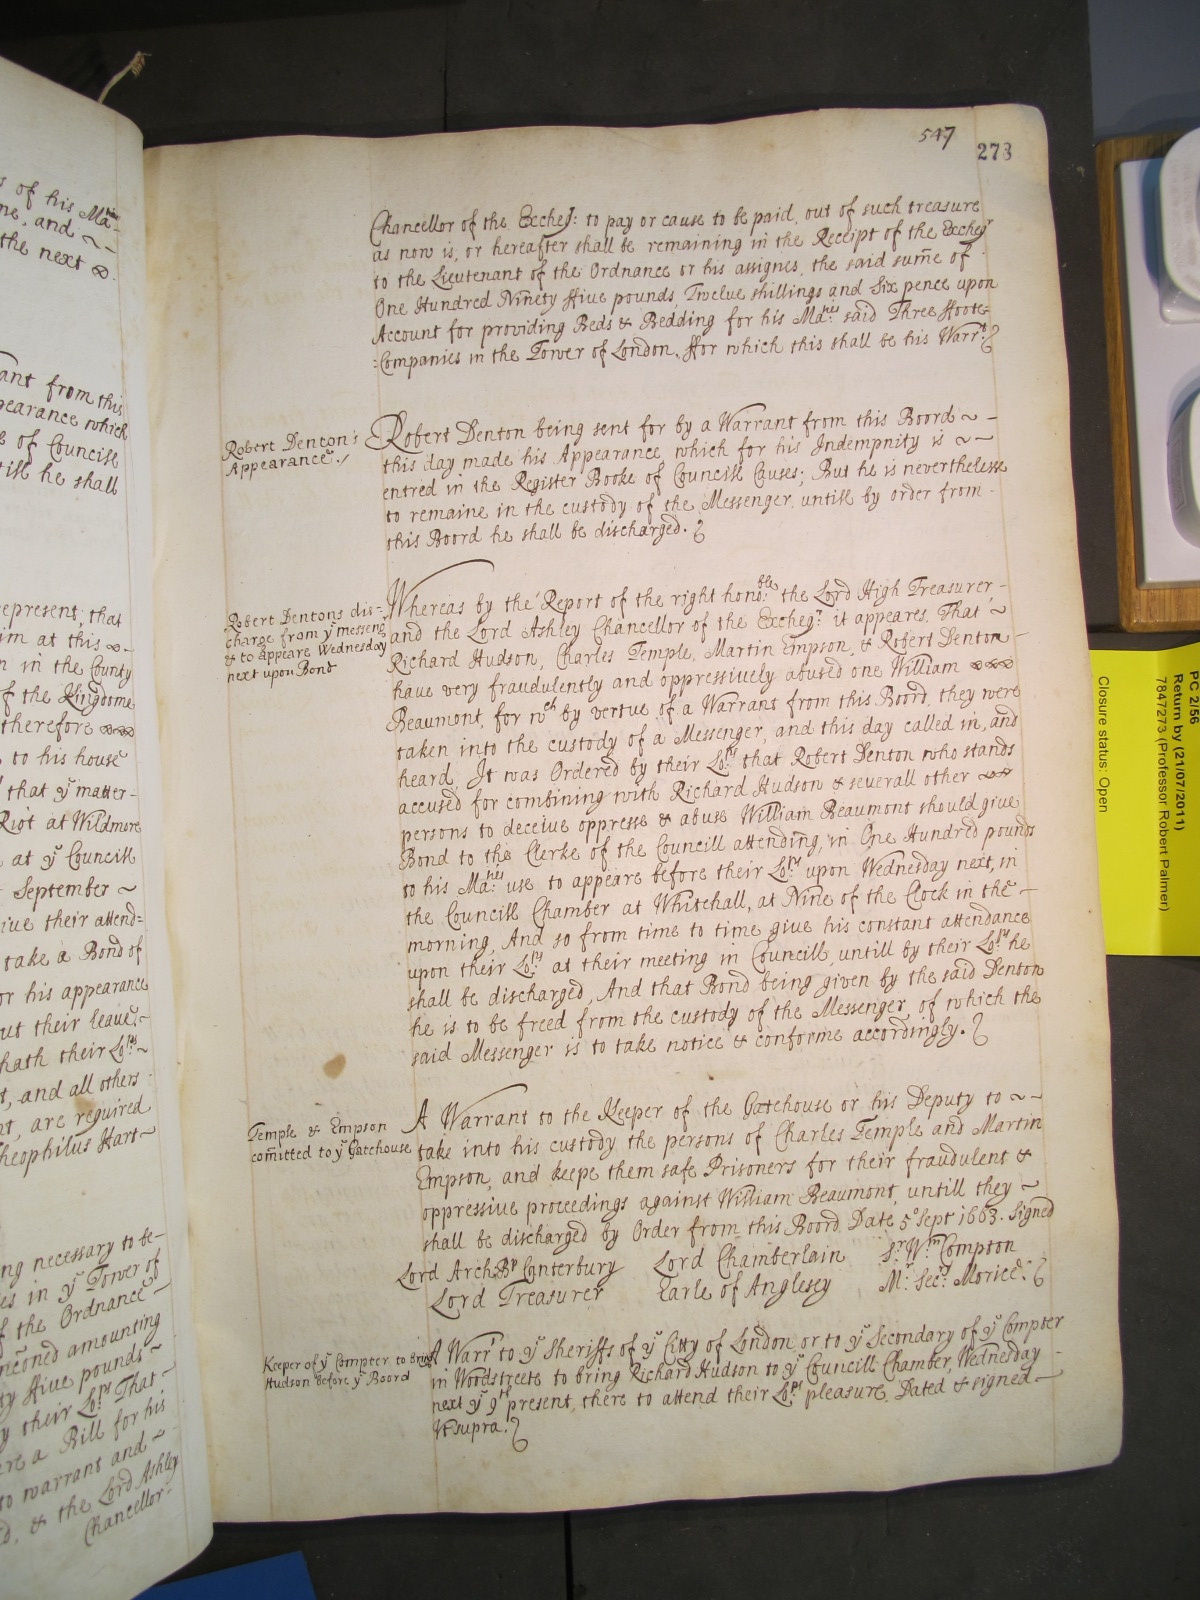 547
273
Chancellor of the Excheqr: to pay or cause to be paid, out of such treasure
as now is, or hereafter shall be remaining in the Receipt of the Excheqr
to the Lieutenant of the Ordnance or his assignes, the said sum̄e of
One Hundred Ninety ffive pounds, Twelve shillings and Six pence upon
Account for providing Beds & Bedding for his Mats: said Three ffoote=
=Companies in the Tower of London. ffor which this shall be his Warrt.
Robert Denton's
Appearance./
Robert Denton being sent for by a Warrant from this Board ~ -
this day made his Appearance, which for his Indempnity is ~ ~
entred in the Register Booke of Councill Causes; But he is neverthelesse
to remaine in the custody of the Messenger, untill by order from -
this Board he shall be discharged.
Robert Dentons dis=
charge from ye messengr
& to appeare Wednesday
next upon Bond
Whereas by the Report of the right honoble: the Lord High Treasurer -
and the Lord Ashley Chancellor of the Excheqr: it appeares, That ~
Richard Hudson, Charles Temple, Martin Empson, & Robert Denton -
have very fraudulently and oppressively abused one William
Beaumont, for wch by vertue of a Warrant from this Board, they were
taken into the custody of a Messenger, and this day called in, and
heard, It was Ordered by their Lops: that Robert Denton who stands
accused for combining with Richard Hudson & severall other
persons to deceive oppresse & abuse William Beaumont should give
Bond to the Clerke of the Councill attending, in One Hundred pounds
to his Mats: use to appeare before their Lops: upon Wednesday next, in
the Councill Chamber at Whitehall, at Nine of the Clock in the -
morning, And so from time to time give his constant attendance
upon their Lops: at their meeting in Councill, untill by their Lops: he
shall be discharged, And that Bond being given by the said Denton
he is to be freed from the custody of the Messenger, of which the
said Messenger is to take notice & conforme accordingly.
Temple & Empson
com̄itted to ye Gatehouse
A Warrant to the Keeper of the Gatehouse or his Deputy to ~ -
take into his custody the persons of Charles Temple and Martin
Empson, and keepe them safe Prisoners for their fraudulent &
oppressive proceedings against William Beaumont, untill they ~
shall be discharged by Order from this Board Date 5o Sept 1663. Signed
Lord ArchBp Canterbury Lord Chamberlain Sr: Wm: Compton
Lord Treasurer Earle of Anglesey Mr: Secr: Morice.
Keeper of ye Compter to bring
Hudson before ye Board
A Warrt to ye Sheriffs of ye Citty of London, or to ye Secondary of ye Compter
in Woodstreete to bring Richard Hudson to ye Councill Chamber, Wednesday -
next ye 9th present, there to attend their Lops: pleasure. Dated & signed -
Vt supra.
s of his Matie
ne, and ~ ~
the next
ant from this
pearance which
e of Councill
till he shall
represent, that
im at this
n in the County
f the Kingdome
therefore
to his house
that ye matter -
Riot at Wildmore
at ye Councill
September ~
ive their attend=
take a Bond of
or his appearance
ut their leave, -
hath their Lops: ~
t, and all others
nt, are required
heophilus Hart~
ng necessary to be-
es in ye Tower of
f the Ordnance -
nc̄oned amounting
ty ffive pounds ~
y their Lops: That -
re a Bill for his
to warrant and ~
d, & the Lord Ashley
Chancellor -
PC 2/56
Return by (21/07/2011)
7847273 (Professor Robert Palmer)
Closure status: Open